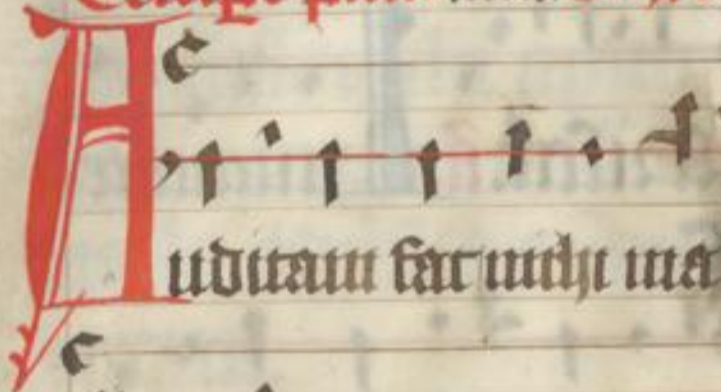 Auditam fac michi ma